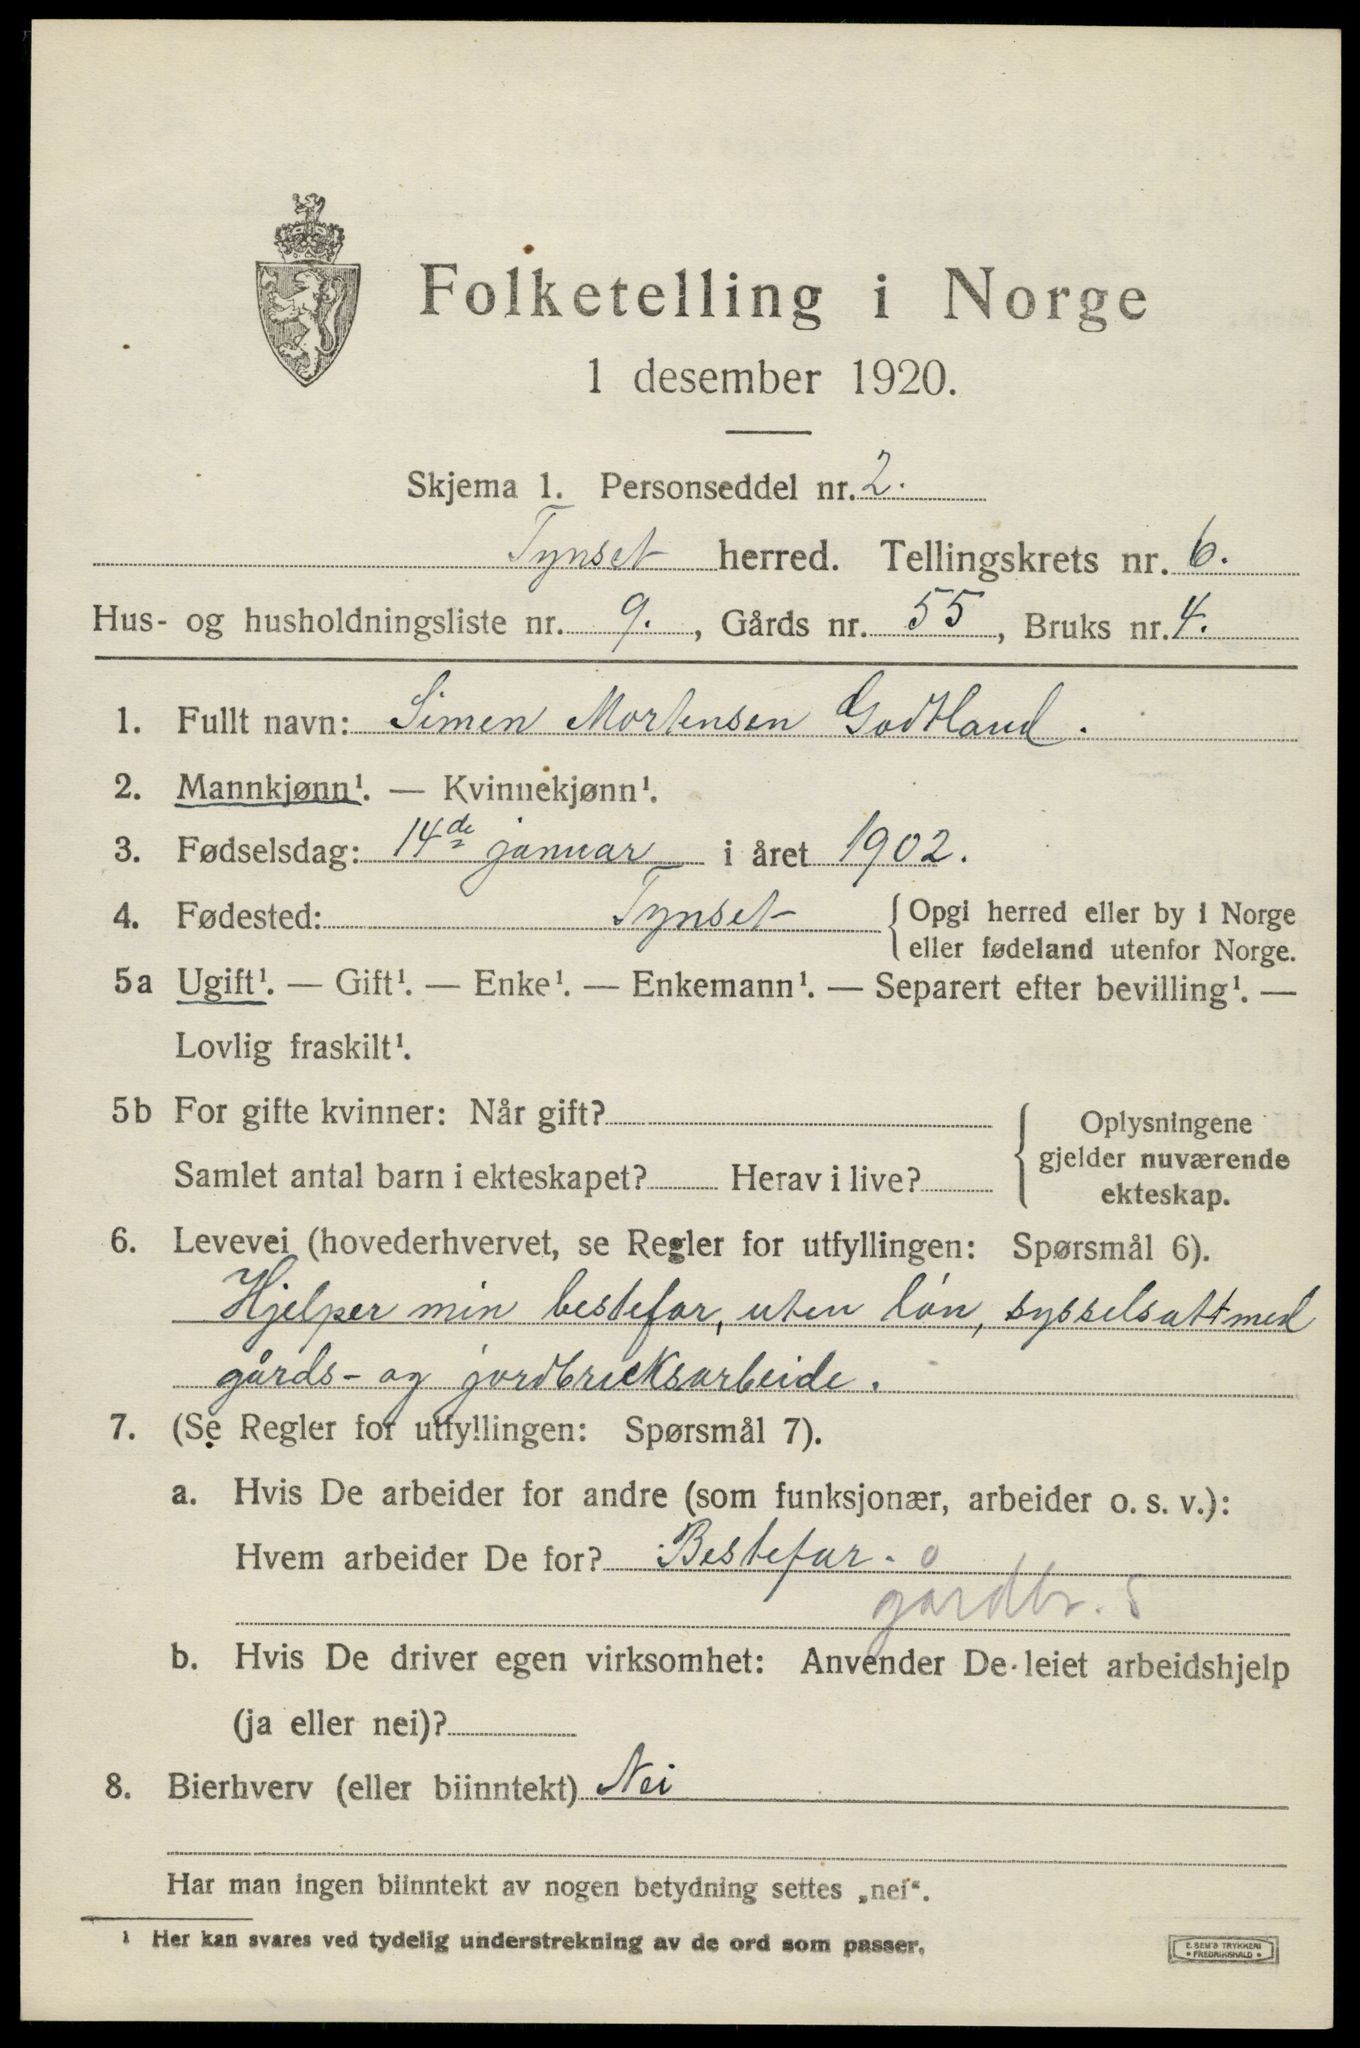 Folketelling i Norge
1 desember 1920.
Skjema 1. Personseddel nr. 2.
Tynset herred. Tellingskrets nr. 6.
Hus- og husholdningsliste nr. 9., Gårds nr. 55, Bruks nr. 4.
1. Fullt navn: Simen Mortensen Godtland.
2. Mannkjønn¹. — Kvinnekjønn¹.
3. Fødselsdag: 14de januar i året 1902.
4. Fødested: Tynset { Opgi herred eller by i Norge
eller fødeland utenfor Norge.
5a Ugift¹. — Gift¹. — Enke¹. — Enkemann¹. — Separert efter bevilling¹. —
Lovlig fraskilt¹.
5b For gifte kvinner: Når gift?
Samlet antal barn i ekteskapet? Herav i live?
{ Oplysningene
gjelder nuværende
ekteskap.
6. Levevei (hovederhvervet, se Regler for utfyllingen: Spørsmål 6).
Hjelper min bestefar, uten løn, sysselsatt med
gårds- og jordbruksarbeide.
7. (Se Regler for utfyllingen: Spørsmål 7).
a. Hvis De arbeider for andre (som funksjonær, arbeider o. s. v.):
Hvem arbeider De for? Bestefar.
gårdbr. s
b. Hvis De driver egen virksomhet: Anvender De leiet arbeidshjelp
(ja eller nei)?
8. Bierhverv (eller biinntekt) Nei
Har man ingen biinntekt av nogen betydning settes „nei“.
¹ Her kan svares ved tydelig understrekning av de ord som passer.
E. SEM'S TRYKKERI
* FREDRIKSHALD *